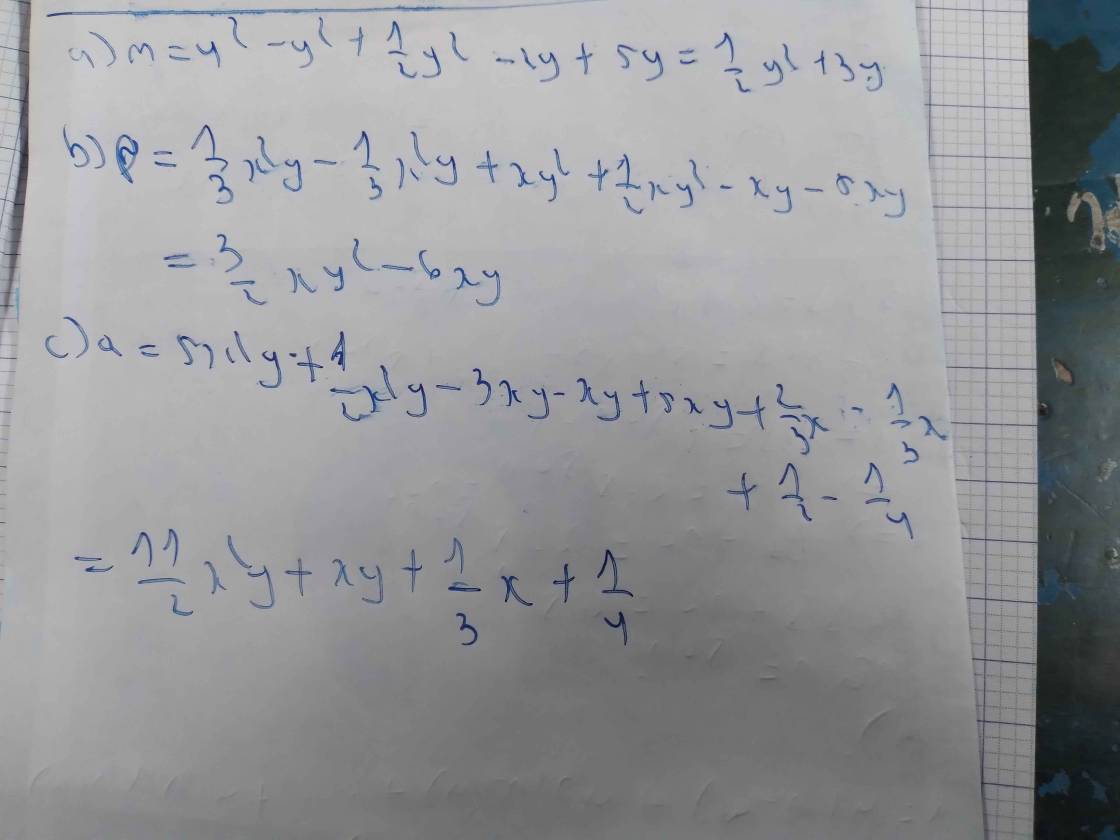 a) M = y² - y² + 1/2 y² - 2y + 5y = 1/2 y² + 3y
b) P = 1/3 x²y - 1/3 x²y + xy² + 1/2 xy² - xy - 5xy
= 3/2 xy² - 6xy
c) a = 5x²y + 1/2 x²y - 3xy - xy + 5xy + 2/3 x - 1/3 x
+ 1/2 - 1/4
= 11/2 x²y + xy + 1/3 x + 1/4